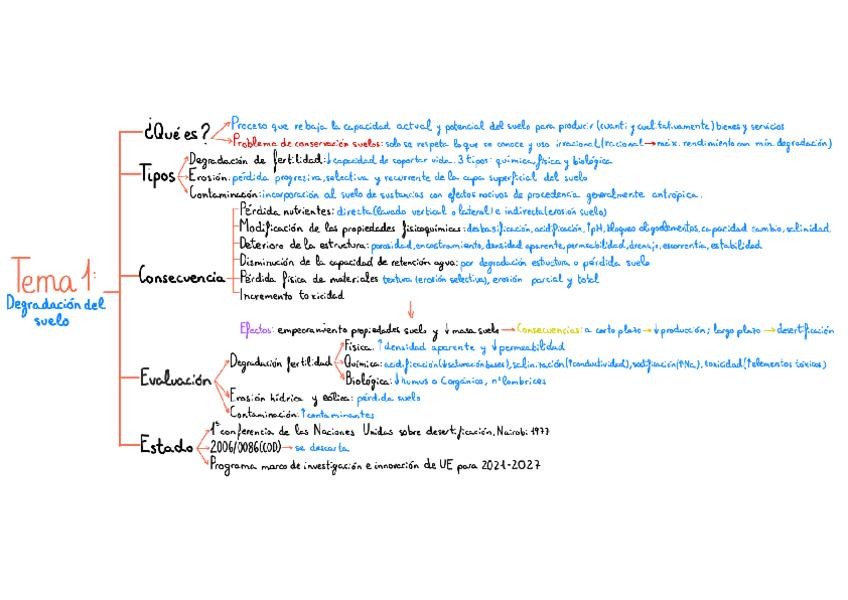 Tema 1:
Degradación del
suelo
¿Qué es?
Proceso que rebaja la capacidad actual y potencial del suelo para producir (cuanti y cualitativamente) bienes y servicios
Problema de conservación suelos: solo se respeta lo que se conoce y uso irracional (racional → máx. rendimiento con mín. degradación)
Tipos
Degradación de fertilidad: ↓ capacidad de soportar vida. 3 tipos: química, física y biológica
Erosión: pérdida progresiva, selectiva y recurrente de la capa superficial del suelo
Contaminación: incorporación al suelo de sustancias con efectos nocivos de procedencia generalmente antrópica.
Consecuencia
Pérdida nutrientes: directa (lavado vertical o lateral) e indirecta (erosión suelo)
Modificación de las propiedades fisicoquímicas: desbasificación, acidificación, ↑pH, bloqueo oligoelementos, capacidad cambio, salinidad.
Deterioro de la estructura: porosidad, encostramiento, densidad aparente, permeabilidad, drenaje, escorrentía, estabilidad
Disminución de la capacidad de retención agua: por degradación estructura o pérdida suelo
Pérdida física de materiales textura (erosión selectiva), erosión parcial y total
Incremento toxicidad
↓
Efectos: empeoramiento propiedades suelo y ↓ masa suelo → Consecuencias: a corto plazo → ↓ producción; largo plazo → desertificación
Evaluación
Degradación fertilidad
Física: ↑ densidad aparente y ↓ permeabilidad
Química: acidificación (↓ saturación bases), salinización (↑ conductividad), sodificación (↑Na), toxicidad (↑ elementos tóxicos)
Biológica: ↓ humus o C orgánico, nº lombrices
Erosión hídrica y eólica: pérdida suelo
Contaminación: ↑ contaminantes
Estado
1ª conferencia de las Naciones Unidas sobre desertificación, Nairobi 1977
2006/0086(COD) → se descarta
Programa marco de investigación e innovación de UE para 2021-2027